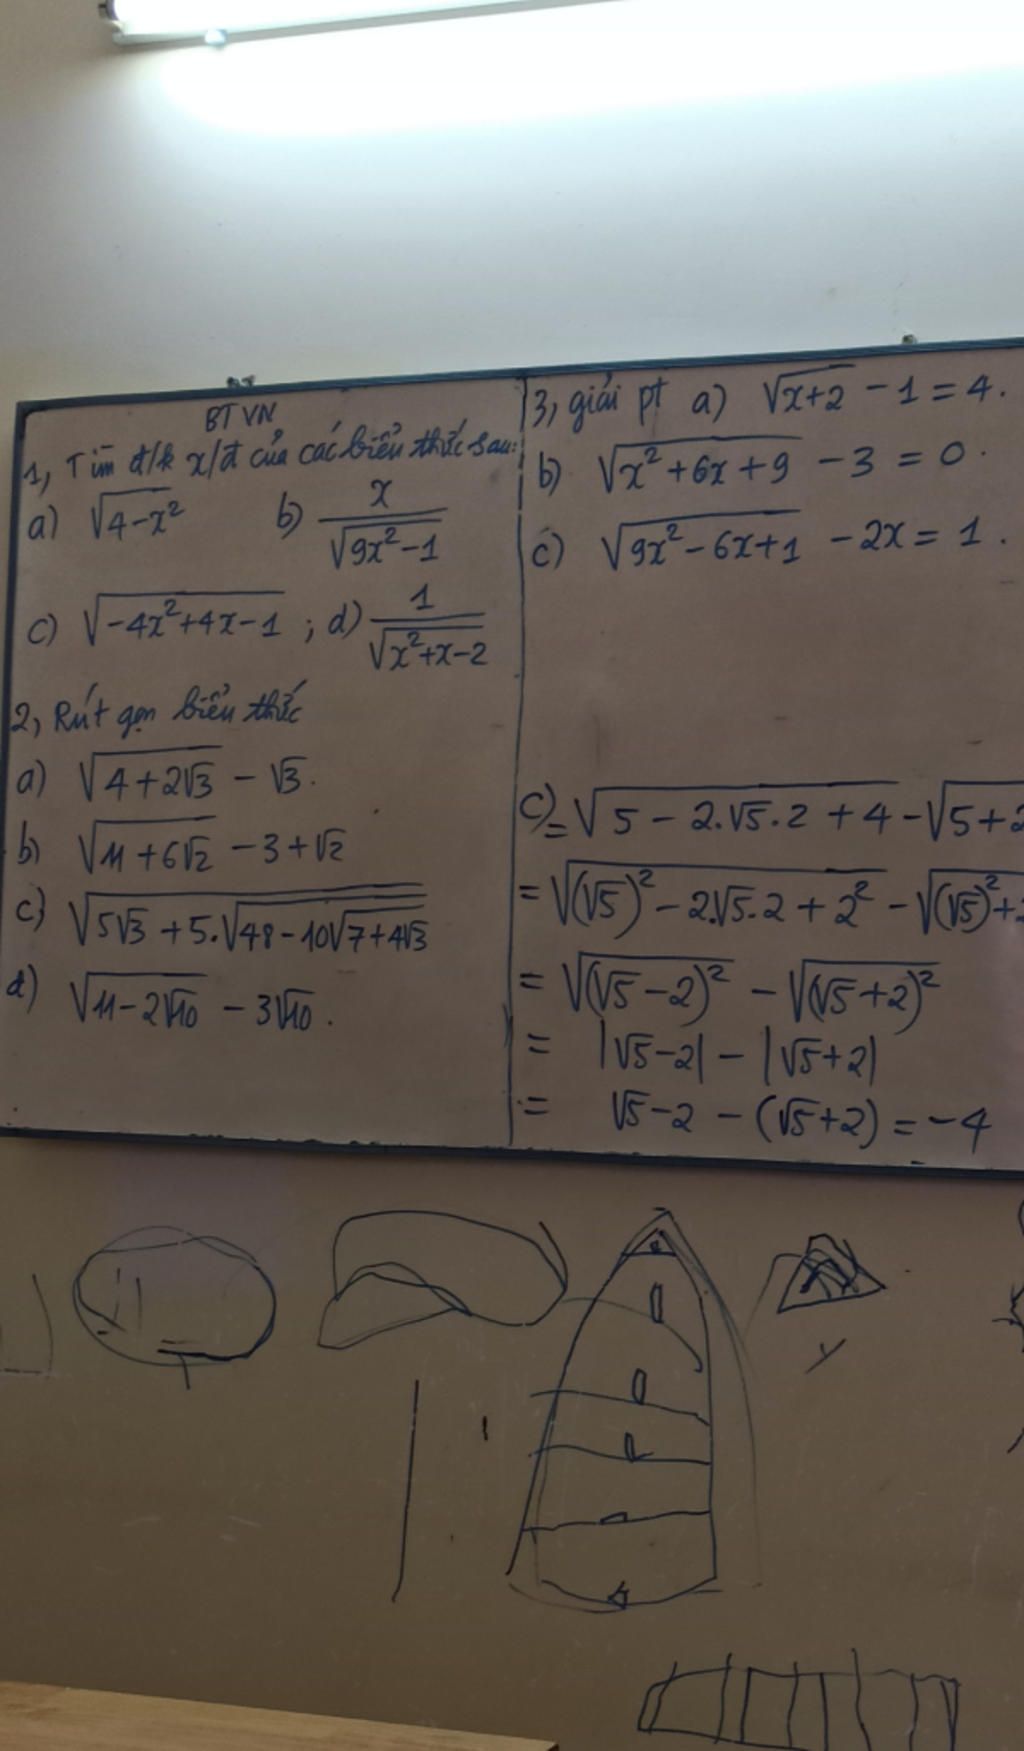 BTVN
1, Tìm đ/k x/đ của các biểu thức sau:
a) √(4-x²) b) x/√(9x²-1)
c) √(-4x²+4x-1) ; d) 1/√(x²+x-2)
2, Rút gọn biểu thức
a) √(4+2√3) - √3.
b) √(11+6√2) -3+√2
c) √(5√3+5.√(48-10√(7+4√3)))
d) √(11-2√10) - 3√10.
3, giải pt a) √(x+2) -1=4.
b) √(x²+6x+9) -3=0.
c) √(9x²-6x+1) -2x=1.
c) = √(5-2.√5.2+4) - √(5+2
= √((√5)²-2.√5.2+2²) - √((√5)²+2
= √((√5-2)²) - √((√5+2)²)
= |√5-2| - |√5+2|
= √5-2-(√5+2)=-4